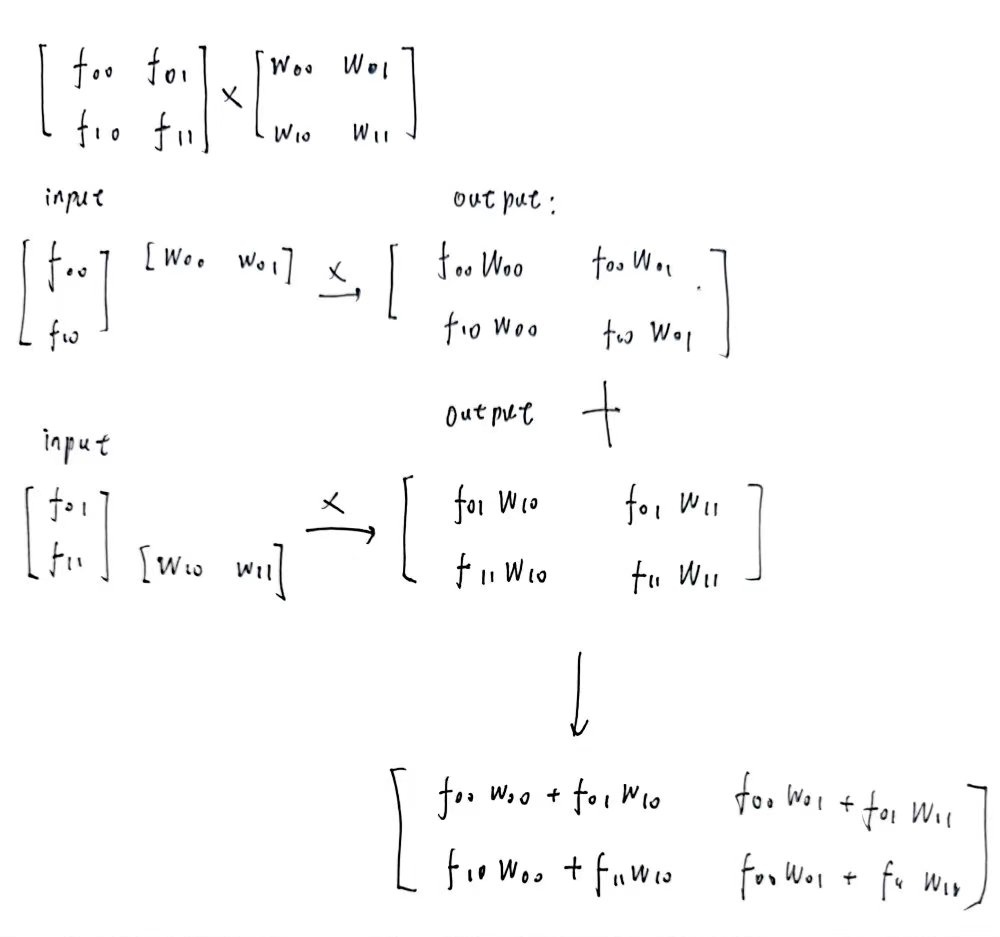 [ f00 f01 ] × [ w00 w01 ]
[ f10 f11 ] [ w10 w11 ]
input output:
[ f00 ] [w00 w01] × → [ f00 w00 f00 w01 ]
[ f10 ] [ f10 w00 f10 w01 ]
output +
input
[ f01 ] × → [ f01 w10 f01 w11 ]
[ f11 ] [w10 w11] [ f11 w10 f11 w11 ]
↓
[ f00 w00 + f01 w10 f00 w01 + f01 w11 ]
[ f10 w00 + f11 w10 f00 w01 + f11 w11 ]